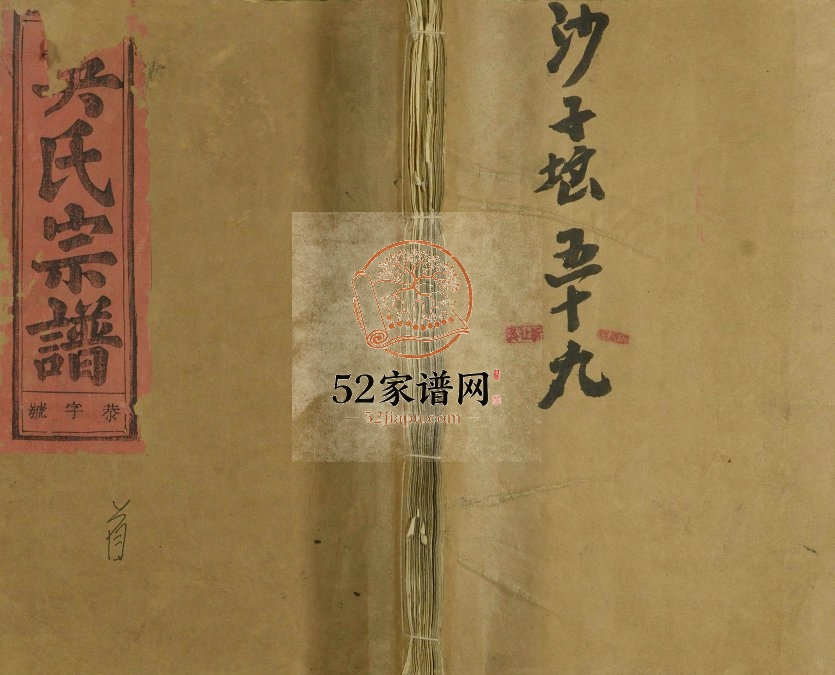 氏宗譜
恭字號
首
沙子 五十九
52家谱网
52jiapu.com